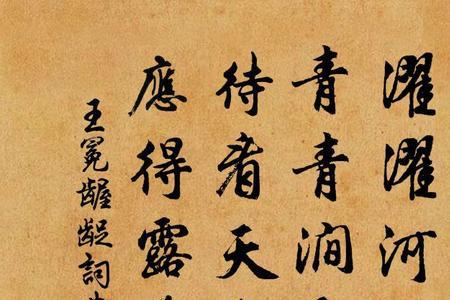 濯濯河
青青澗
待看天
應得露
王冕齷齪詞